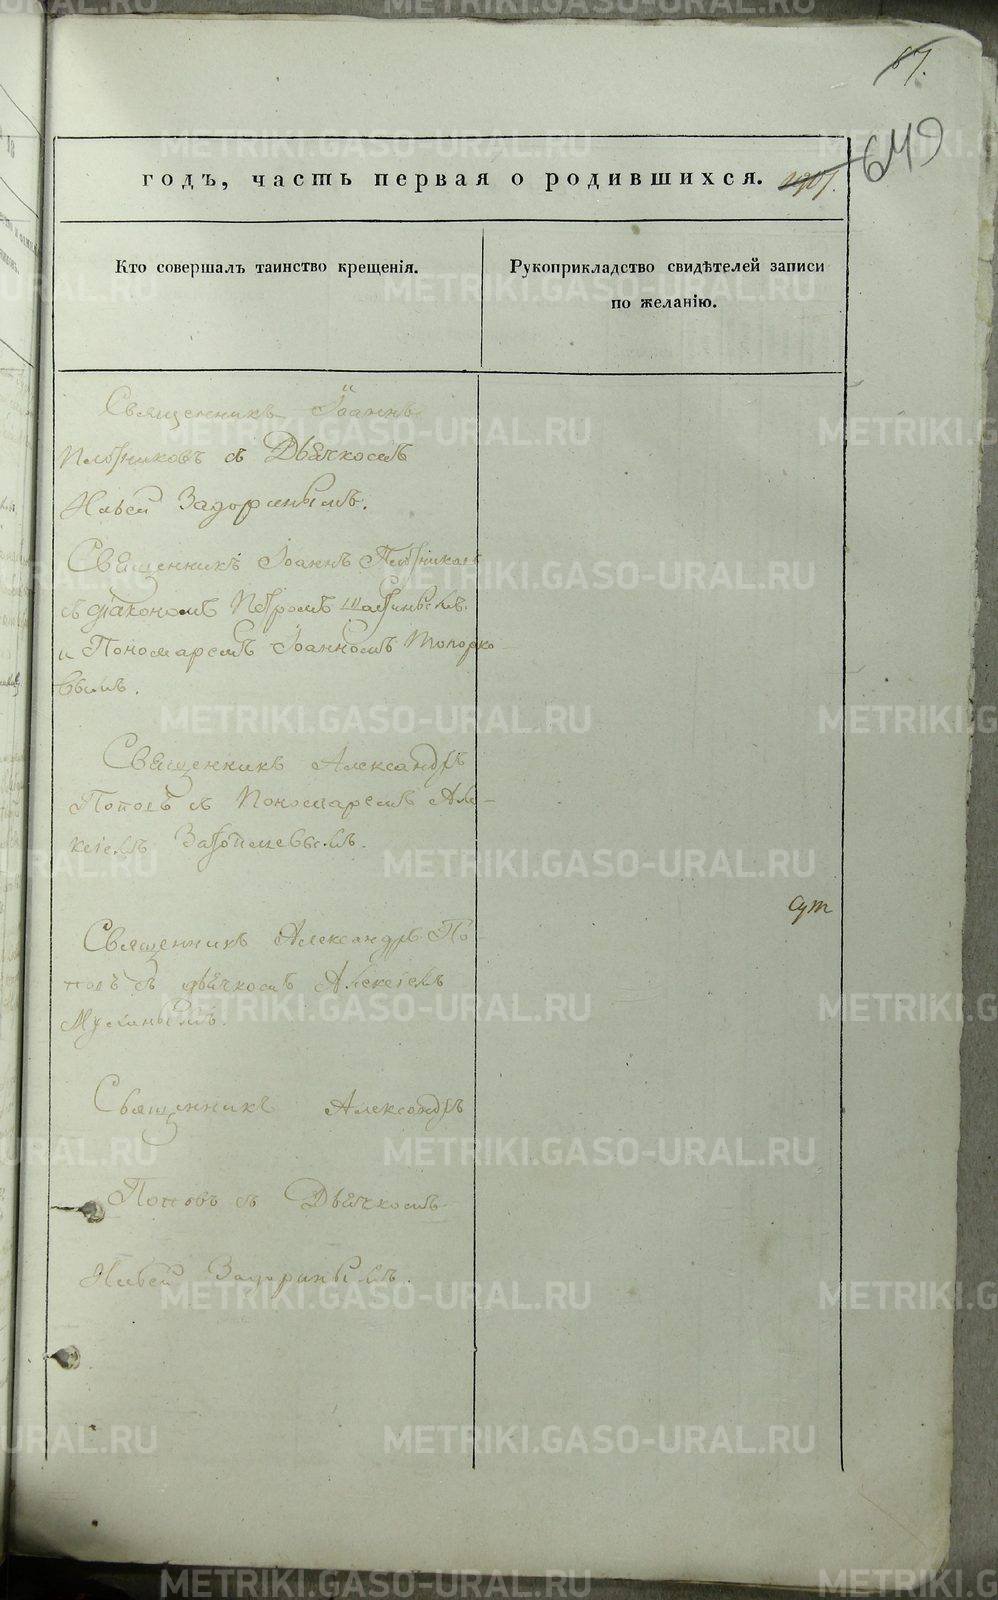 87.
649
годъ, часть первая о родившихся.
Кто совершалъ таинство крещенія.
Рукоприкладство свидѣтелей записи
по желанію.
Священникъ Іоаннъ
Плотниковъ съ Дьячкомъ
Ильей Задоринымъ.
Священникъ Іоаннъ Плотниковъ
съ діакономъ Петромъ
и Пономаремъ Іоанномъ Топорко
вымъ.
Священникъ Александръ
Поповъ съ Пономаремъ Але-
ксіемъ
Священникъ Александръ По
повъ съ дьячкомъ Алексіемъ
Священникъ Александръ
Поповъ съ Дьячкомъ
Ильей Задоринымъ.
METRIKI.GASO-URAL.RU